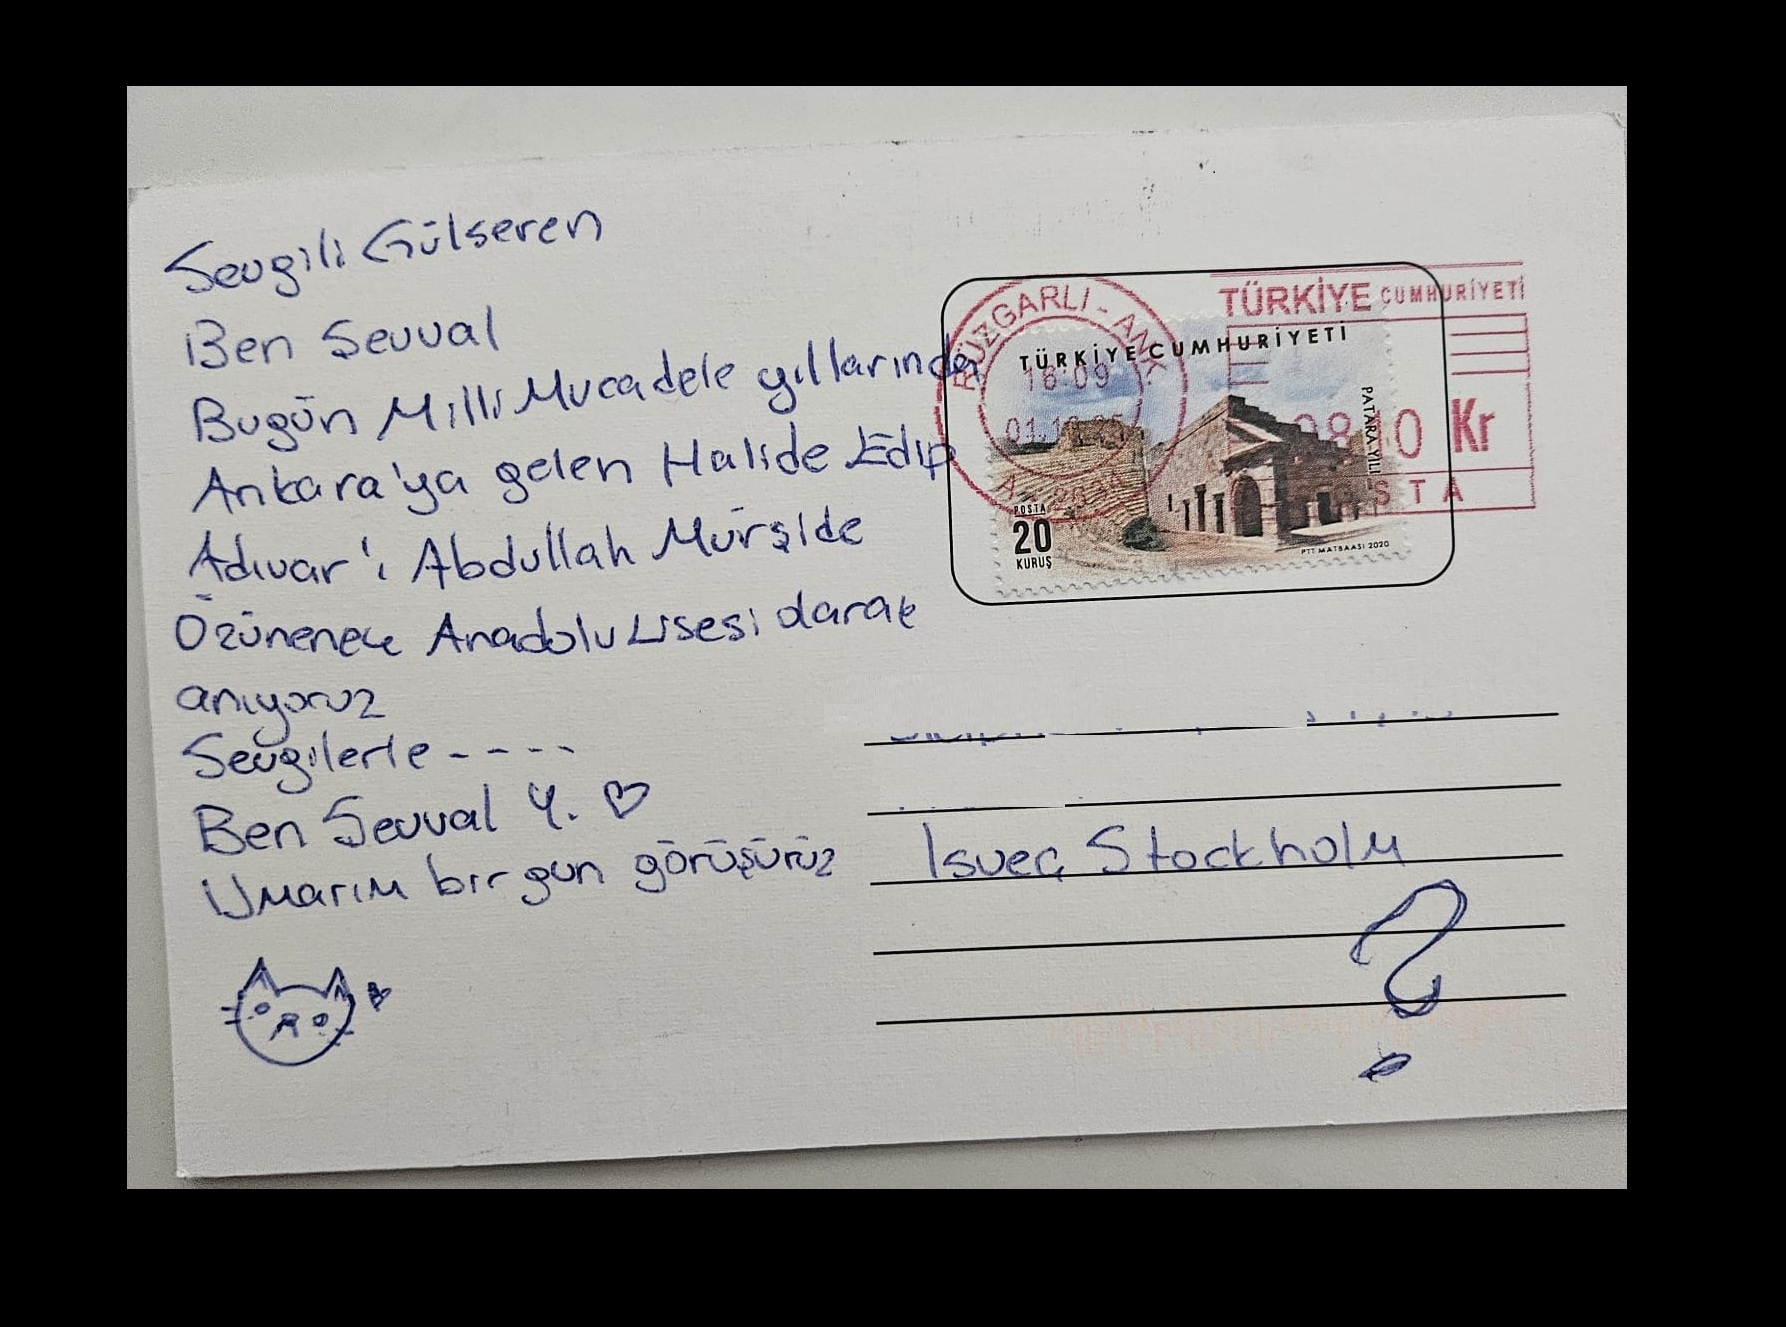 Sevgili Gülseren
Ben Şevval
Bugün Milli Mucadele yıllarında
Ankara'ya gelen Halide Edip
Adıvar'ı Abdullah Mürşide
Özünenek Anadolu Lisesi olarak
anıyoruz
Sevgilerle ----
Ben Şevval Y. ♡
Umarım bir gün görüşürüz
RÜZGARLI - ANK.
16 09
TÜRKİYE CUMHURİYETİ
TÜRKİYE CUMHURİYETİ
PATARA YILI
Kr
POSTA
20
KURUŞ
PTT MATBAASI 2020
İsveç Stockholm
?